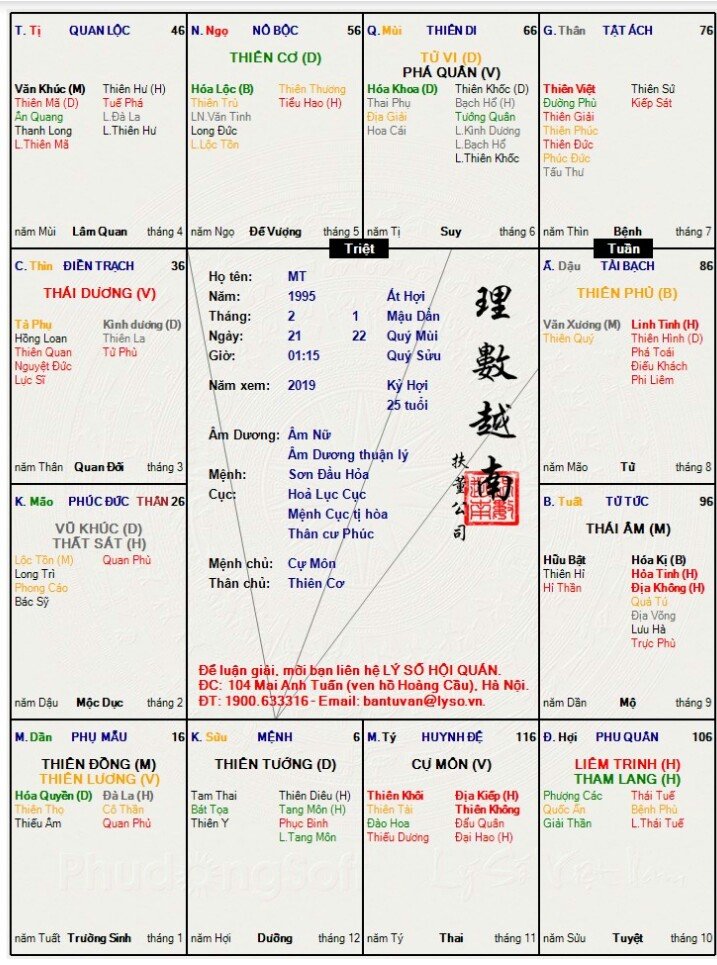 T. Tị QUAN LỘC 46
Văn Khúc (M) Thiên Hư (H)
Thiên Mã (D) Tuế Phá
Ân Quang L.Đà La
Thanh Long L.Thiên Hư
L.Thiên Mã
năm Mùi Lâm Quan tháng 4
N. Ngọ NÔ BỘC 56
THIÊN CƠ (D)
Hóa Lộc (B) Thiên Thương
Thiên Trù Tiểu Hao (H)
LN.Văn Tinh
Long Đức
L.Lộc Tồn
năm Ngọ Đế Vượng tháng 5
Q. Mùi THIÊN DI 66
TỬ VI (D)
PHÁ QUÂN (V)
Hóa Khoa (D) Thiên Khốc (D)
Thai Phụ Bạch Hổ (H)
Địa Giải Tướng Quân
Hoa Cái L.Kình Dương
L.Bạch Hổ
L.Thiên Khốc
năm Tị Suy tháng 6
G. Thân TẬT ÁCH 76
Thiên Việt Thiên Sứ
Đường Phù Kiếp Sát
Thiên Giải
Thiên Phúc
Thiên Đức
Phúc Đức
Tấu Thư
năm Thìn Bệnh tháng 7
Triệt
Tuần
C. Thìn ĐIỀN TRẠCH 36
THÁI DƯƠNG (V)
Tả Phụ Kình dương (D)
Hồng Loan Thiên La
Thiên Quan Tử Phù
Nguyệt Đức
Lực Sĩ
năm Thân Quan Đới tháng 3
Họ tên: MT
Năm: 1995 Ất Hợi
Tháng: 2 1 Mậu Dần
Ngày: 21 22 Quý Mùi
Giờ: 01:15 Quý Sửu
Năm xem: 2019 Kỷ Hợi
25 tuổi
Âm Dương: Âm Nữ
Âm Dương thuận lý
Mệnh: Sơn Đầu Hỏa
Cục: Hoả Lục Cục
Mệnh Cục tị hòa
Thân cư Phúc
Mệnh chủ: Cự Môn
Thân chủ: Thiên Cơ
理數越南
扶董公司
Để luận giải, mời bạn liên hệ LÝ SỐ HỘI QUÁN.
ĐC: 104 Mai Anh Tuấn (ven hồ Hoàng Cầu), Hà Nội.
ĐT: 1900.633316 - Email: bantuvan@lyso.vn.
Ấ. Dậu TÀI BẠCH 86
THIÊN PHỦ (B)
Văn Xương (M) Linh Tinh (H)
Thiên Quý Thiên Hình (D)
Phá Toái
Điếu Khách
Phi Liêm
năm Mão Tử tháng 8
K. Mão PHÚC ĐỨC THÂN 26
VŨ KHÚC (D)
THẤT SÁT (H)
Lộc Tồn (M) Quan Phù
Long Trì
Phong Cáo
Bác Sỹ
năm Dậu Mộc Dục tháng 2
B. Tuất TỬ TỨC 96
THÁI ÂM (M)
Hữu Bật Hóa Kị (B)
Thiên Hỉ Hỏa Tinh (H)
Hỉ Thần Địa Không (H)
Quả Tú
Địa Võng
Lưu Hà
Trực Phù
năm Dần Mộ tháng 9
M. Dần PHỤ MẪU 16
THIÊN ĐỒNG (M)
THIÊN LƯƠNG (V)
Hóa Quyền (D) Đà La (H)
Thiên Thọ Cô Thần
Thiếu Âm Quan Phủ
năm Tuất Trường Sinh tháng 1
K. Sửu MỆNH 6
THIÊN TƯỚNG (D)
Tam Thai Thiên Diêu (H)
Bát Tọa Tang Môn (H)
Thiên Y Phục Binh
L.Tang Môn
năm Hợi Dưỡng tháng 12
M. Tý HUYNH ĐỆ 116
CỰ MÔN (V)
Thiên Khôi Địa Kiếp (H)
Thiên Tài Thiên Không
Đào Hoa Đẩu Quân
Thiếu Dương Đại Hao (H)
năm Tý Thai tháng 11
Đ. Hợi PHU QUÂN 106
LIÊM TRINH (H)
THAM LANG (H)
Phượng Các Thái Tuế
Quốc Ấn Bệnh Phù
Giải Thần L.Thái Tuế
năm Sửu Tuyệt tháng 10